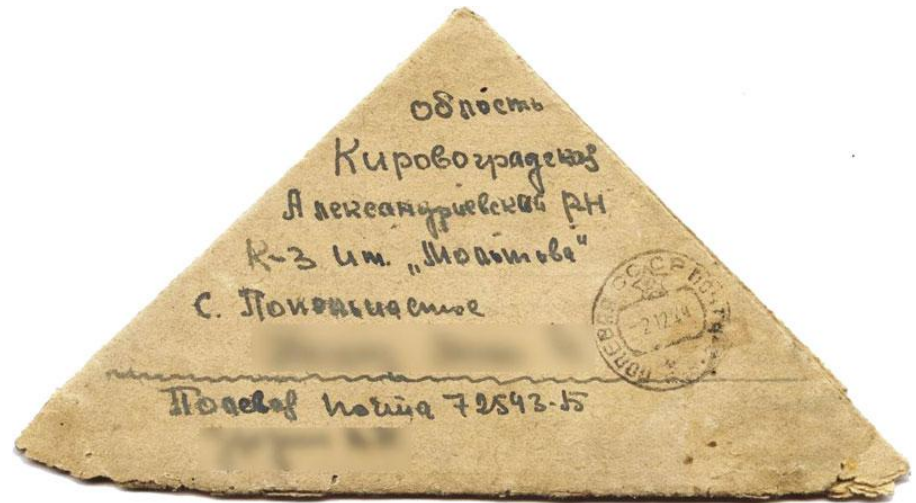 область
Кировоградская
Александриевский РН
К-3 им. „Молотова"
с.
Полевая почта 72543-Б
ПОЛЕВАЯ ПОЧТА
СССР
2 12 44